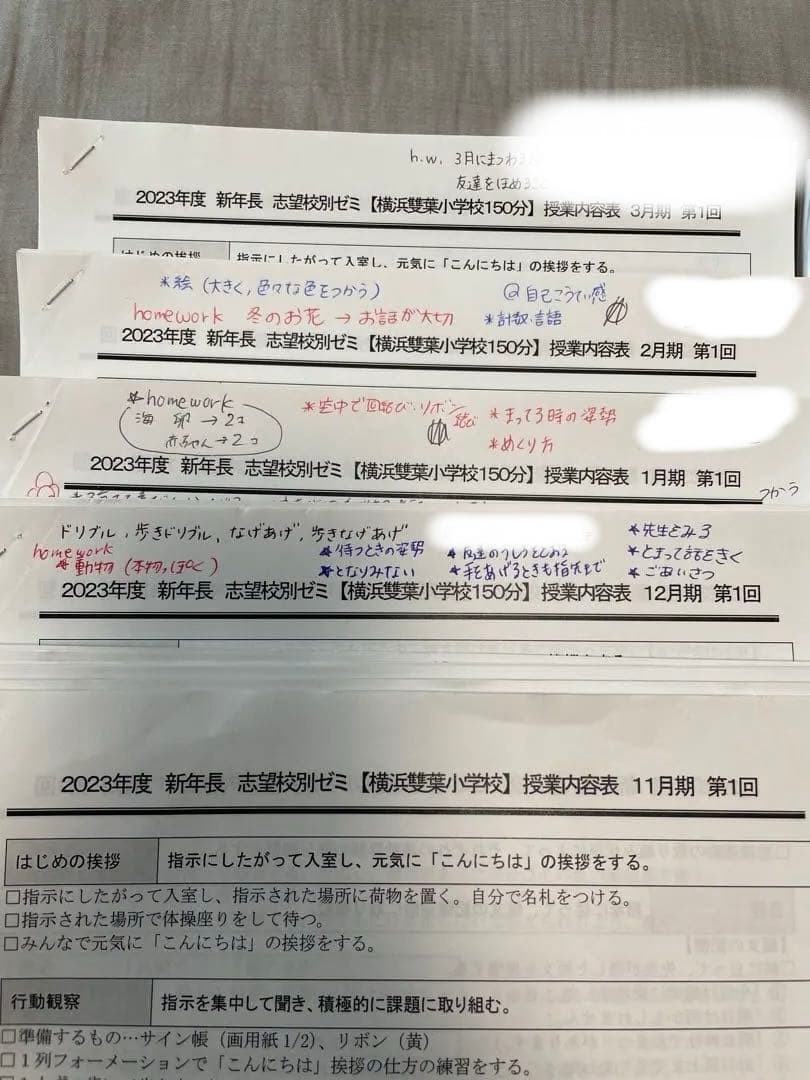 h.w. 3月にまつわる
友達をほめること
2023年度 新年長 志望校別ゼミ【横浜雙葉小学校150分】授業内容表 3月期 第1回
はじめの挨拶 指示にしたがって入室し、元気に「こんにちは」の挨拶をする。
*絵(大きく,色々な色をつかう) @自己こうてい感
homework 冬のお花→お話が大切 *計数,言語
2023年度 新年長 志望校別ゼミ【横浜雙葉小学校150分】授業内容表 2月期 第1回
*homework *空中で玉結び・リボン結び *まってる時の姿勢
海 卵→2コ
赤ちゃん→2コ *めくり方
2023年度 新年長 志望校別ゼミ【横浜雙葉小学校150分】授業内容表 1月期 第1回
つかう
ドリブル,歩きドリブル,なげあげ,歩きなげあげ *先生をみる
homework *待つときの姿勢 *とまって話をきく
*動物(本物っぽく) *となりみない *手をあげるときも指先まで *ごあいさつ
2023年度 新年長 志望校別ゼミ【横浜雙葉小学校150分】授業内容表 12月期 第1回
2023年度 新年長 志望校別ゼミ【横浜雙葉小学校】授業内容表 11月期 第1回
はじめの挨拶 指示にしたがって入室し、元気に「こんにちは」の挨拶をする。
□指示にしたがって入室し、指示された場所に荷物を置く。自分で名札をつける。
□指示された場所で体操座りをして待つ。
□みんなで元気に「こんにちは」の挨拶をする。
行動観察 指示を集中して聞き、積極的に課題に取り組む。
□準備するもの…サイン帳(画用紙1/2)、リボン(黄)
□1列フォーメーションで「こんにちは」挨拶の仕方の練習をする。